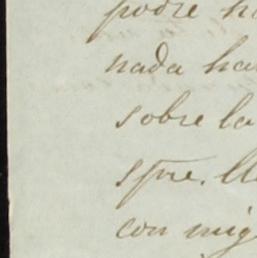 podre ha
nada ha
sobre la
spre. ll
con mig